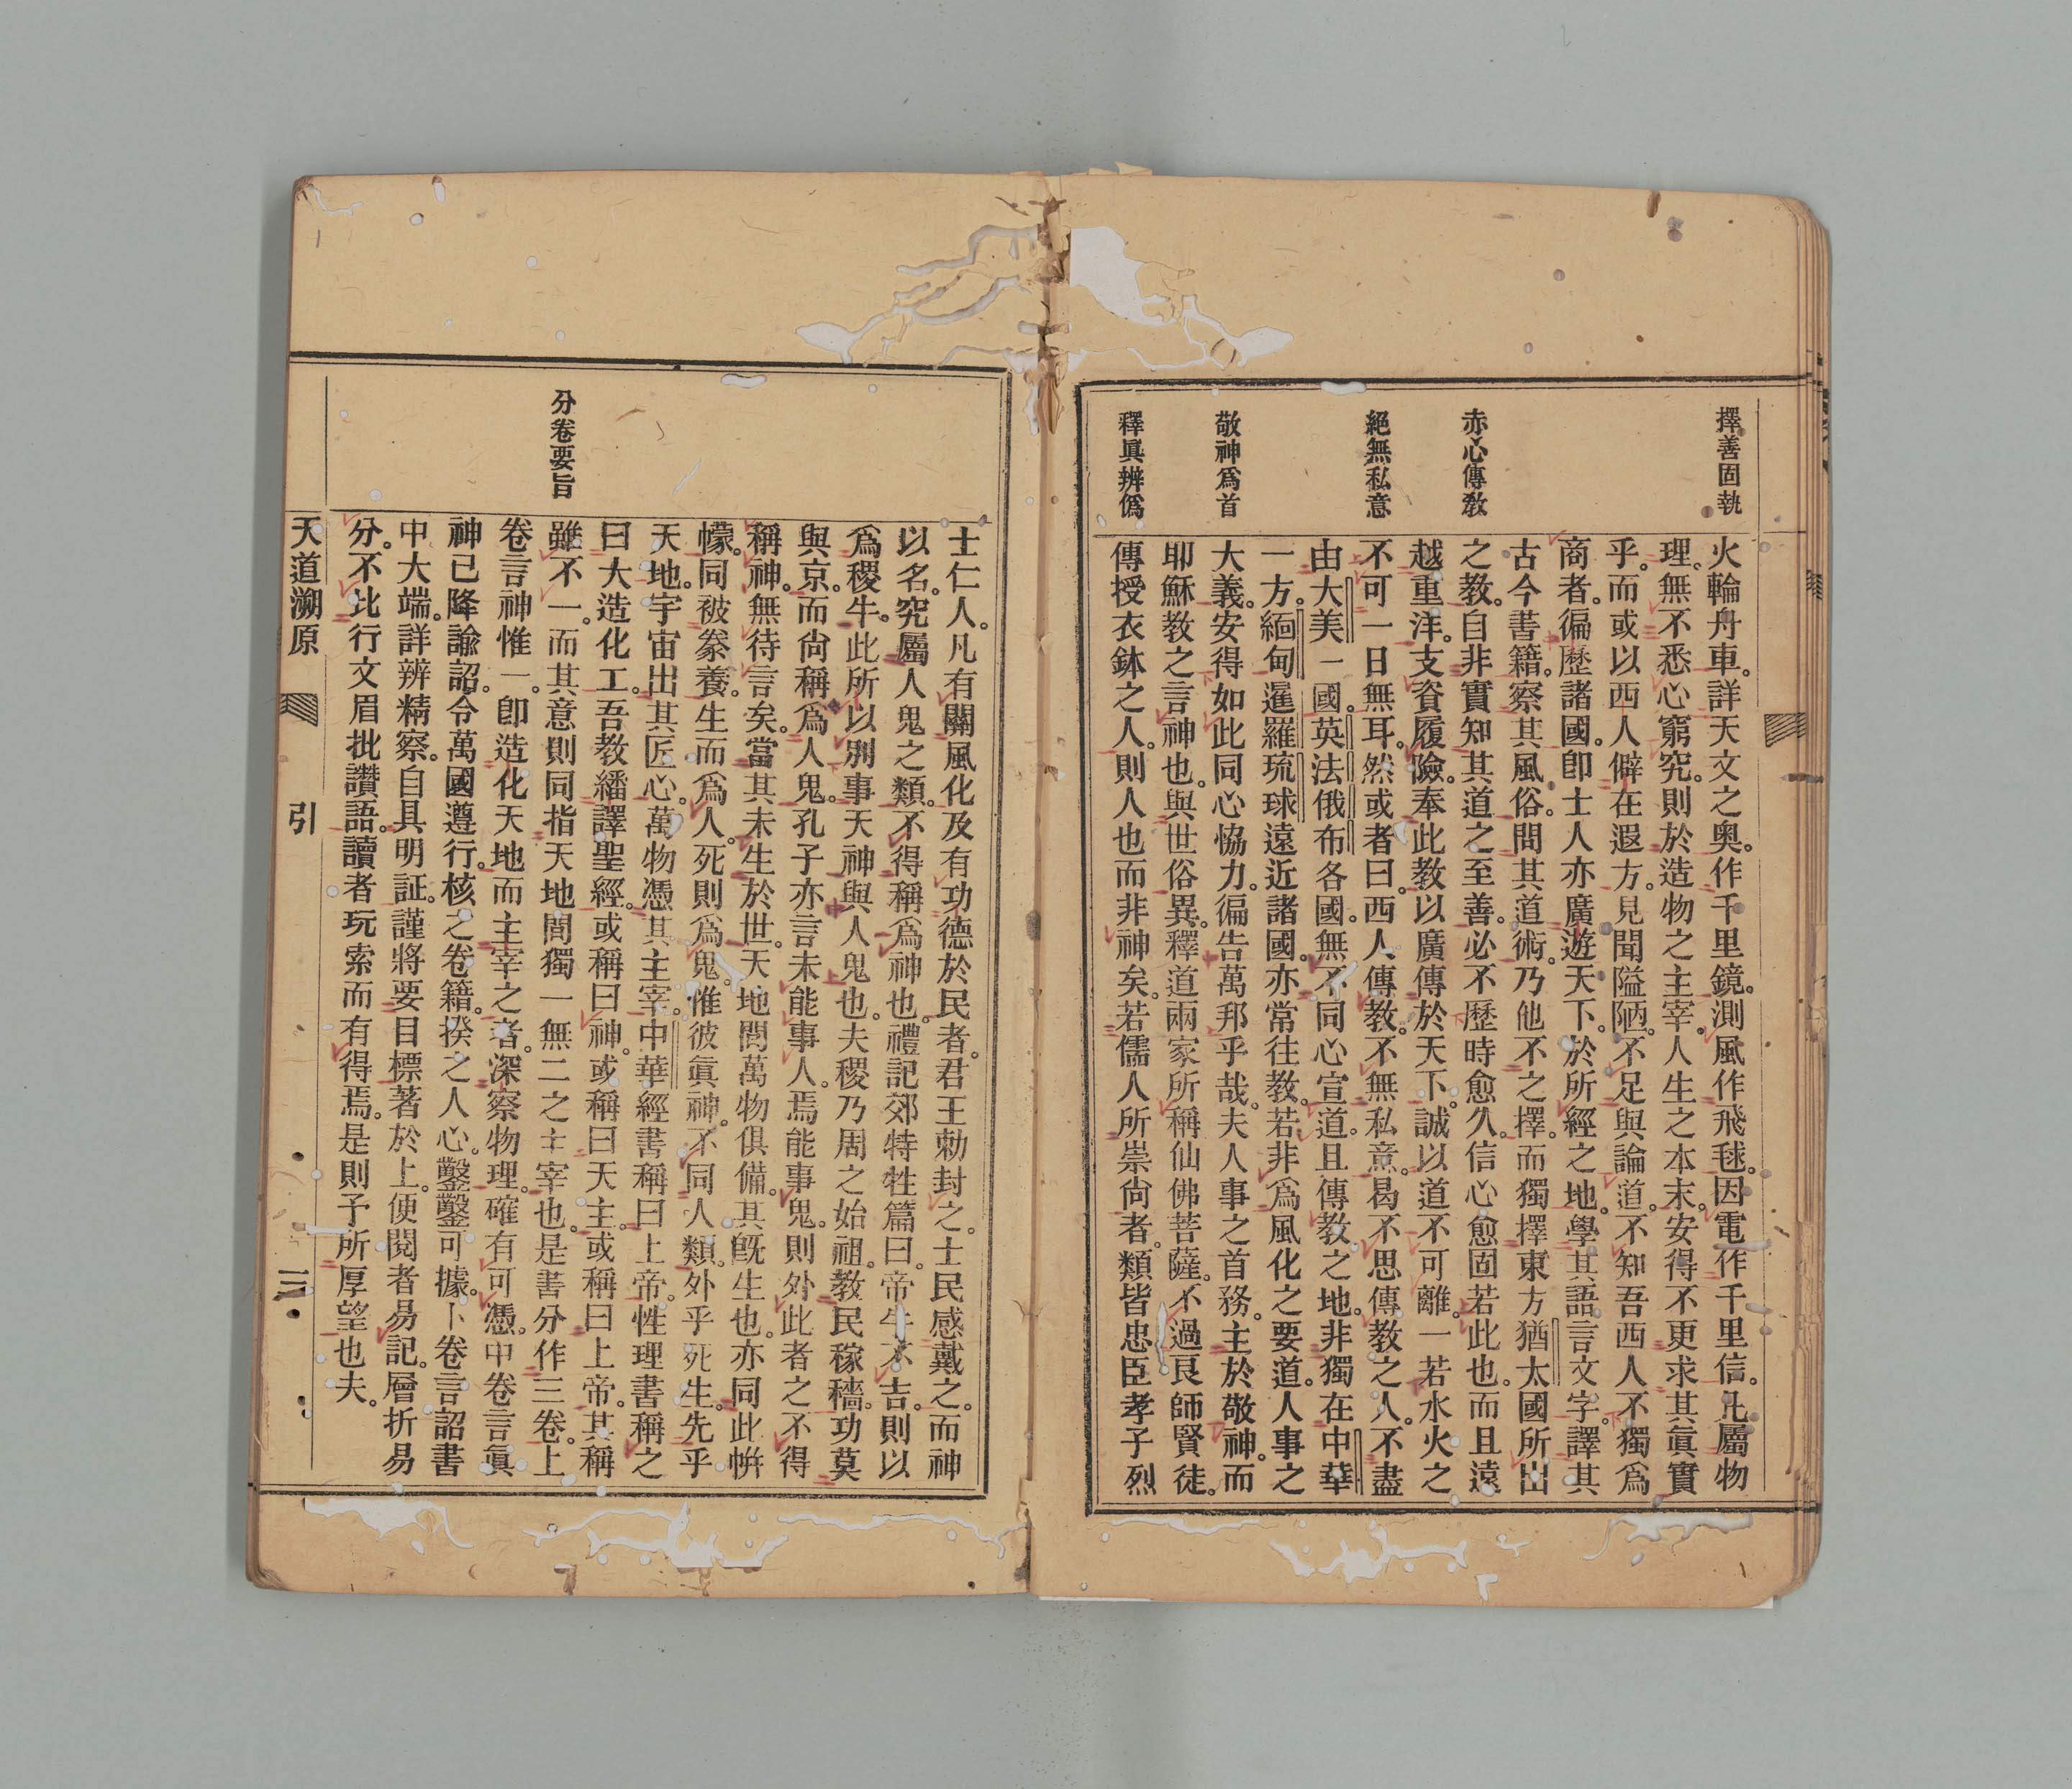 擇善固執
赤心傳教
絕無私意
敬神爲首
釋眞辨僞
火輪舟車。詳天文之奧。作千里鏡。測風作飛毬。因電作千里信。凡屬物
理。無不悉心窮究。則於造物之主宰。人生之本末。安得不更求其眞實
乎。而或以西人僻在遐方。見聞隘陋。不足與論道。不知吾西人不獨爲
商者。徧歷諸國。卽士人亦廣遊天下。於所經之地。學其語言文字。譯其
古今書籍。察其風俗。問其道術。乃他不之擇。而獨擇東方猶太國所出
之教。自非實知其道之至善。必不歷時愈久。信心愈固若此也。而且遠
越重洋。支資履險。奉此教以廣傳於天下。誠以道不可離。一若水火之
不可一日無耳。然或者曰。西人傳教。不無私意。曷不思傳教之人。不盡
由大美一國。英法俄布各國。無不同心宣道。且傳教之地。非獨在中華
一方。緬甸暹羅琉球遠近諸國。亦常往教。若非爲風化之要道。人事之
大義。安得如此同心恊力。徧告萬邦乎哉。夫人事之首務。主於敬神。而
耶穌教之言神也。與世俗異。釋道兩家所稱仙佛菩薩。不過良師賢徒。
傳授衣鉢之人。則人也而非神矣。若儒人所崇尙者。類皆忠臣孝子烈
分卷要旨
士仁人。凡有關風化及有功德於民者。君王勅封之。士民感戴之。而神
以名。究屬人鬼之類。不得稱爲神也。禮記郊特牲篇曰。帝牛不吉。則以
爲稷牛。此所以別事天神與人鬼也。夫稷乃周之始祖。教民稼穡。功莫
與京。而尙稱爲人鬼。孔子亦言未能事人。焉能事鬼。則外此者之不得
稱神。無待言矣。當其未生於世。天地間萬物俱備。其旣生也。亦同此帡
幪。同被豢養。生而爲人。死則爲鬼。惟彼眞神。不同人類。外乎死生。先乎
天地。宇宙出其匠心。萬物憑其主宰。中華經書稱曰上帝。性理書稱之
曰大造化工。吾教繙譯聖經。或稱曰神。或稱曰天主。或稱曰上帝。其稱
雖不一。而其意則同指天地間獨一無二之主宰也。是書分作三卷。上
卷言神惟一。卽造化天地而主宰之者。深察物理。確有可憑。中卷言眞
神已降諭詔。令萬國遵行。核之卷籍。揆之人心。鑿鑿可據。下卷言詔書
中大端。詳辨精察。自具明証。謹將要目標著於上。便閱者易記。層折易
分。不比行文眉批讚語。讀者玩索而有得焉。是則予所厚望也夫。
天道溯原 引 三